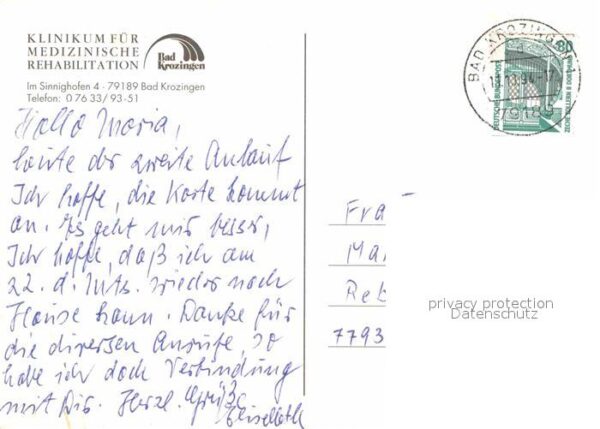 KLINIKUM FÜR
MEDIZINISCHE
REHABILITATION
Bad
Krozingen
Im Sinnighofen 4 · 79189 Bad Krozingen
Telefon: 0 76 33/ 93-51
Hallo Maria,
heute der zweite Anlauf
Ich hoffe, die Karte kommt
an. Es geht mir besser,
Ich hoffe, daß ich am
22. d. Mts. wieder nach
Hause kann. Danke für
die diversen Anrufe, so
habe ich doch Verbindung
mit Dir. Herzl. Grüße
Elisabeth
BAD KROZINGEN
79189
80
DEUTSCHE BUNDESPOST
ZECHE ZOLLERN II DORTMUND
Fra
Ma
Reb
7793
privacy protection
Datenschutz